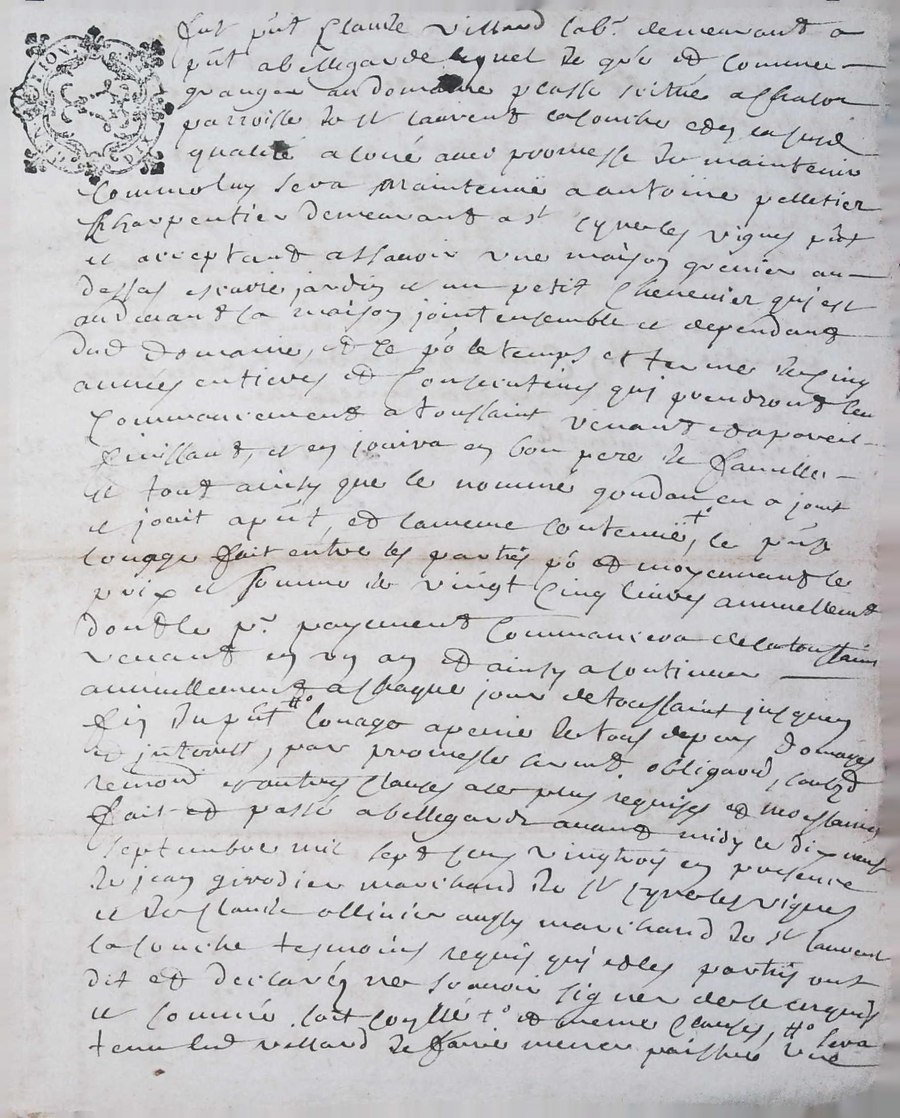 fut pnt Claude Villard labr demeurant a
pnt a bellegarde lequel de gre et comme
granger au domaine plasse scitué a
parroisse de st laurent la conche et en la susd
qualité a loué avec promesse de maintenir
comme luy sera maintenue a antoine pelletier
charpentier demeurant a st cyr les vignes pnt
et acceptant assavoir une maison grenier au
dessus escurie jardin et un petit chenevier qui est
au devant la maison joint ensemble et dependant
dud domaine, et ce po le temps et terme de cinq
années entieres et consecutives qui prendront leur
commancement a toussaint venant et a pareil
finissant, et en jouira en bon pere de famille
et tout ainsy que le nommé goudan en a jouit
et jouit a pnt, et la meme contenue + le pnt
louage fait entre les parties po et moyennant le
prix et somme de vingt cinq livres annuellement
dont le pr payement commancera de la toussaint
venant en un an et ainsy a continuer
annuellement a chaque jour de toussaint jusques
fin du pnt louage a peine de tous depens domages
et interest, par promesse serment obligaon,
renon et autres clauses a ce plus requises et necessaires
fait et passé a bellegarde avant midy ce dix neuf
septembre mil sept cens vingtrois en presence
de jean girodier marchand de st cyr les vignes
et de Claude ollinier aussy marchand de st laurent
la conche tesmoins requis qui et les parties ont
dit et declarés ne scavoir signer de ce enquis
et sommé soit con llé + et meme clauses, sera
tenu led villard de faire mener paistre une